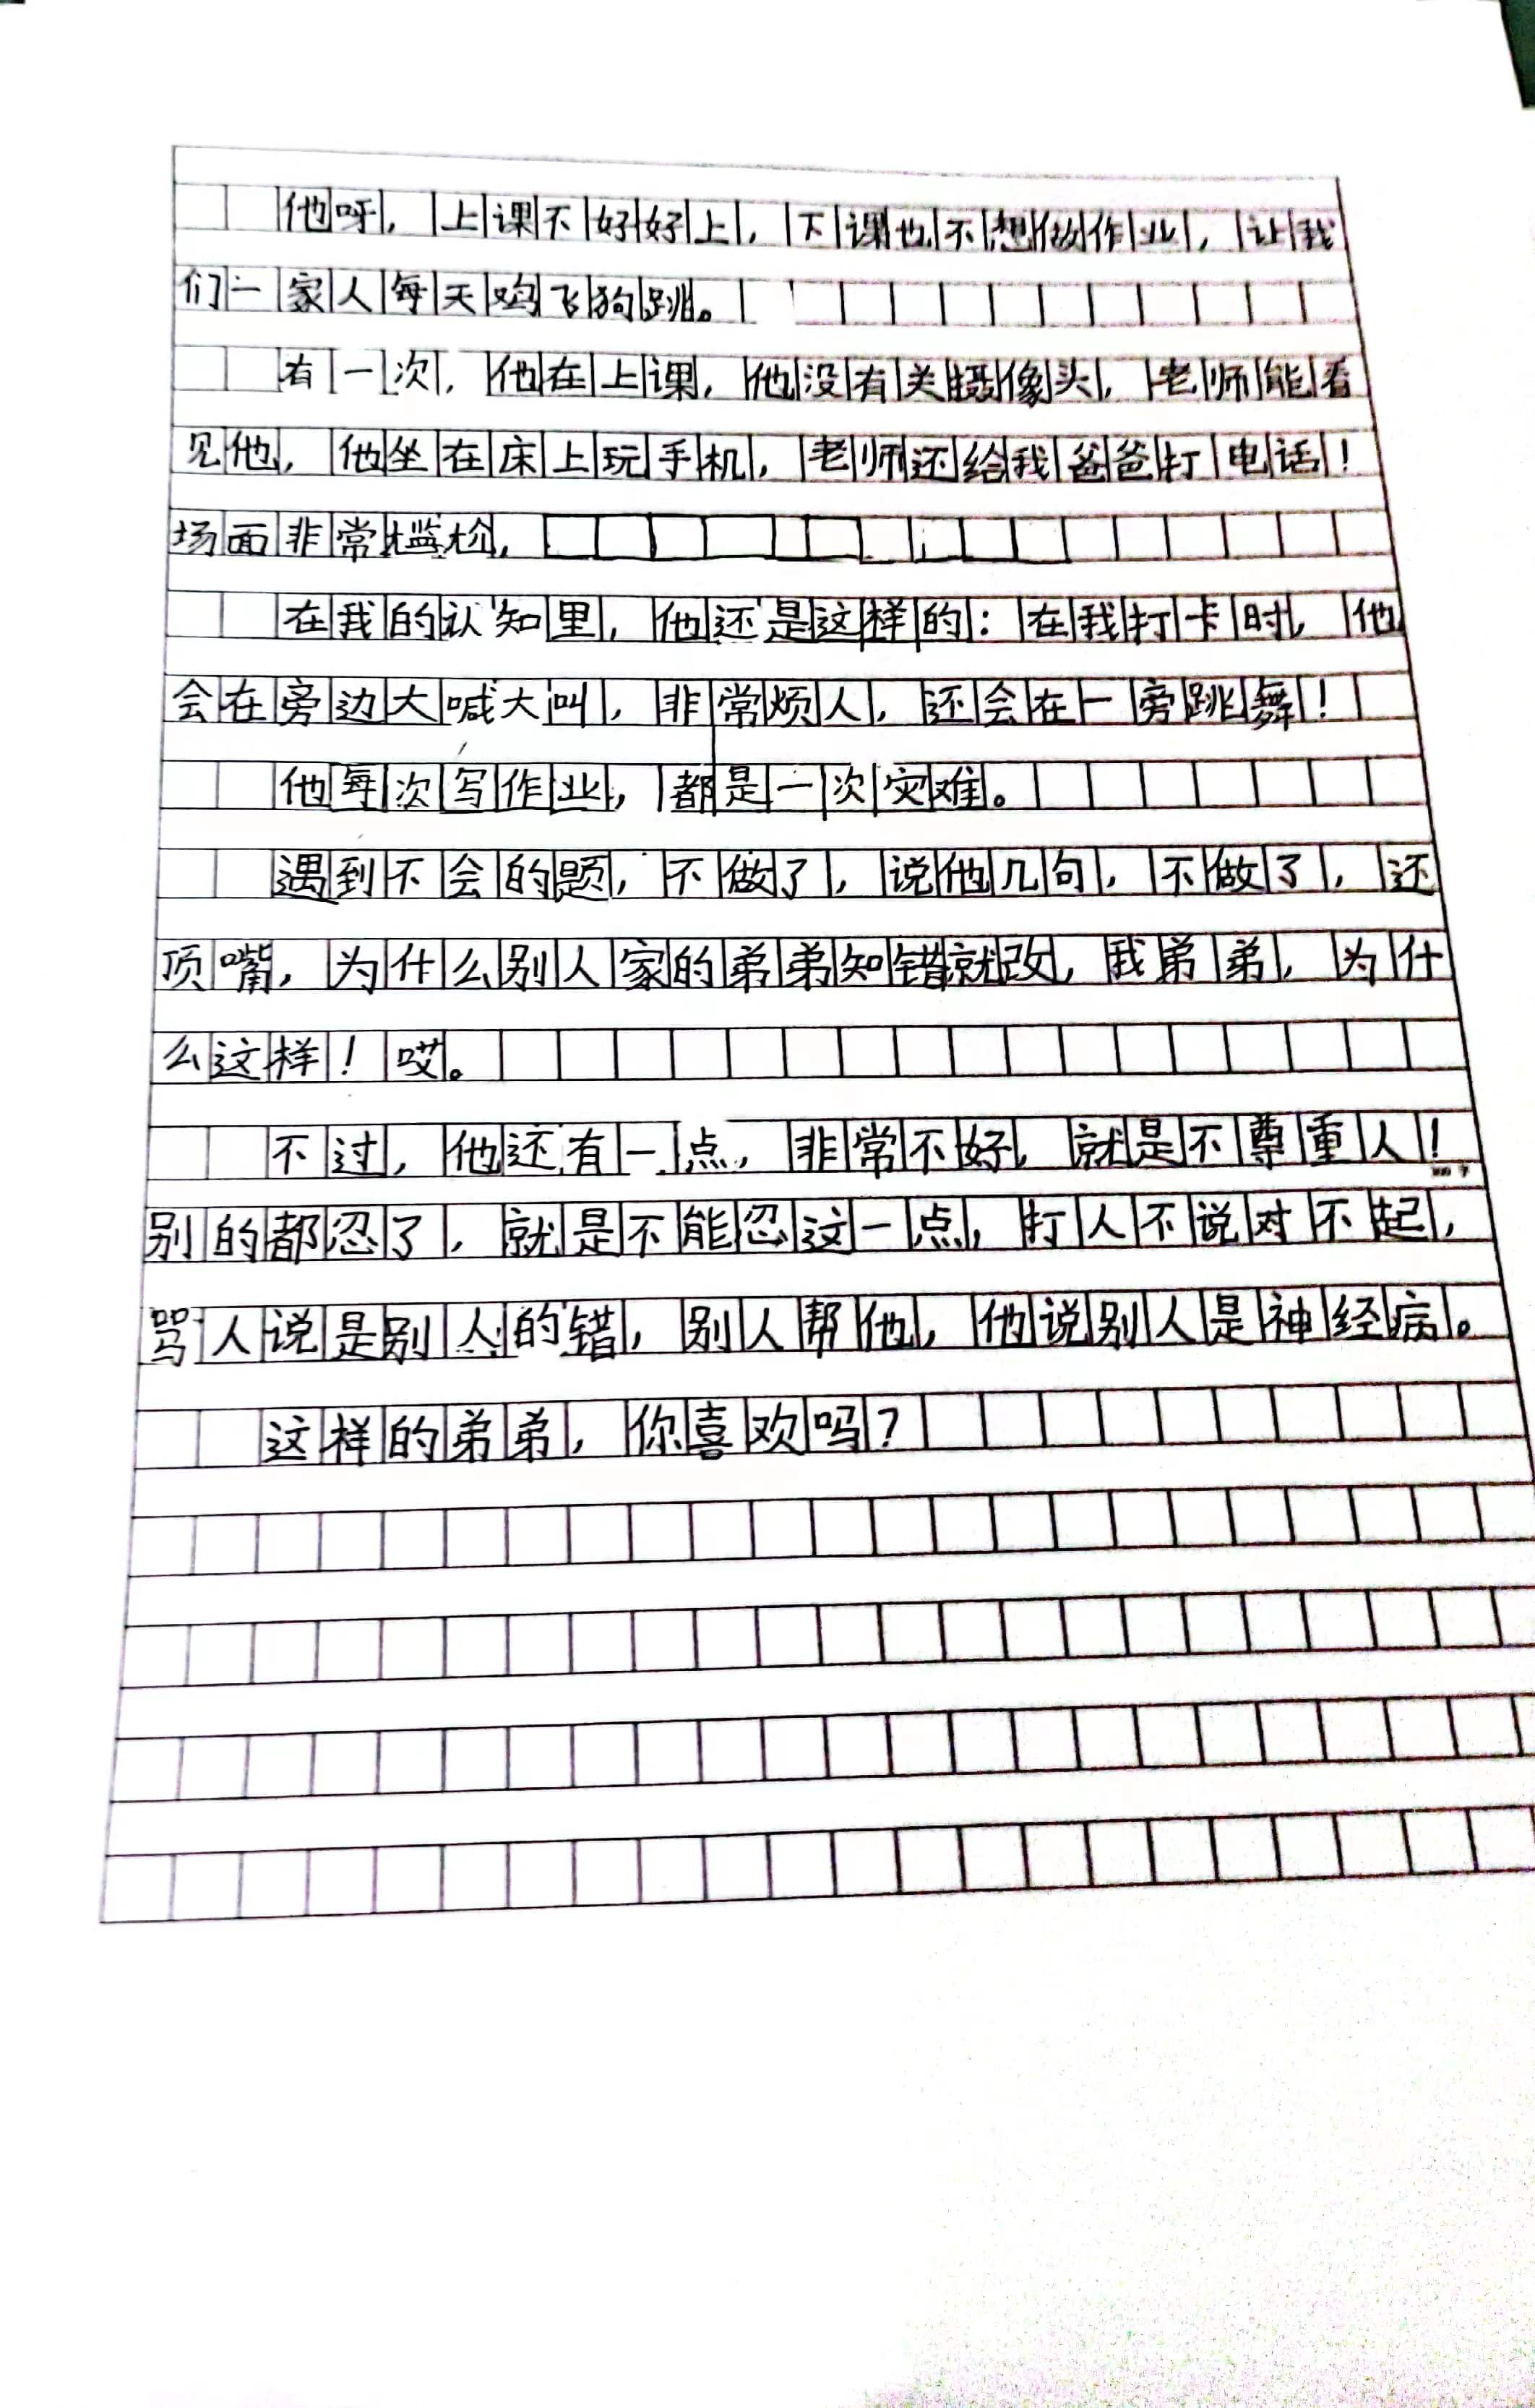 他呀，上课不好好上，下课也不想做作业，让我
们一家人每天鸣飞狗跳。
有一次，他在上课，他没有关摄像头，老师能看
见他，他坐在床上玩手机，老师还给我爸爸打电话！
场面非常尴尬，
在我的认知里，他还是这样的：在我打卡时，他
会在旁边大喊大叫，非常烦人，还会在一旁跳舞！
他每次写作业，都是一次灾难。
遇到不会的题，不做了，说他几句，不做了，还
顶嘴，为什么别人家的弟弟知错就改，我弟弟，为什
么这样！哎。
不过，他还有一点，非常不好，就是不尊重人！
别的都忍了，就是不能忍这一点，打人不说对不起，
骂人说是别人的错，别人帮他，他说别人是神经病。
这样的弟弟，你喜欢吗？